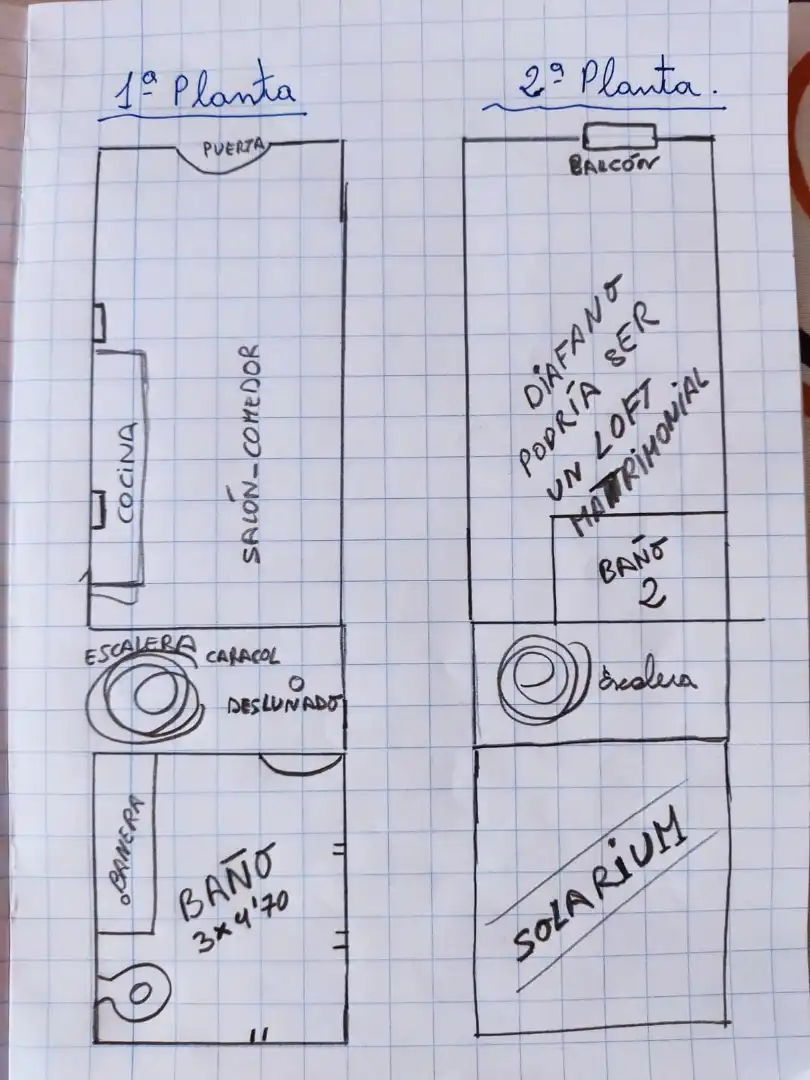 1ª Planta
PUERTA
COCINA
SALÓN-COMEDOR
ESCALERA CARACOL
DESLUNADO
BAÑERA
BAÑO
3x4'70
2ª Planta.
BALCÓN
DIAFANO
PODRÍA SER
UN LOFT
MATRIMONIAL
BAÑO
2
Escalera
SOLARIUM